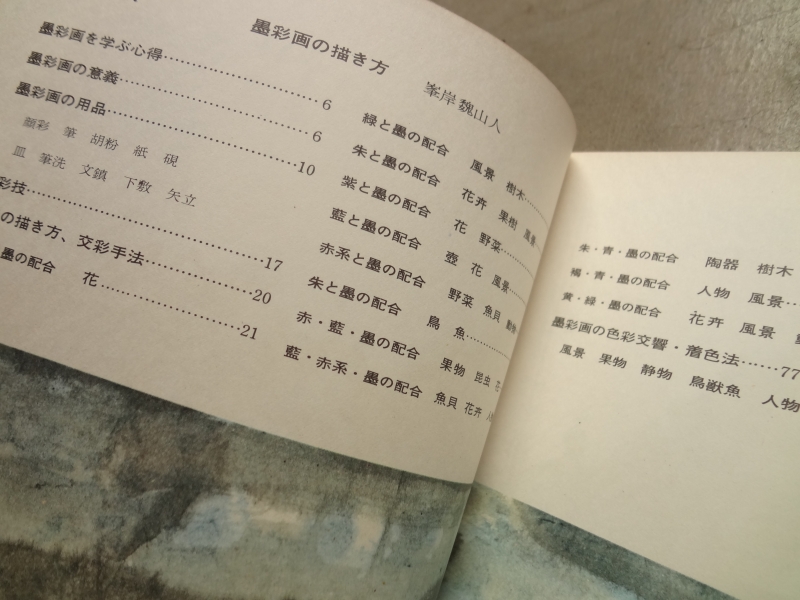 墨彩画の描き方
峯岸 魏山人
墨彩画を学ぶ心得……6
墨彩画の意義……6
墨彩画の用品……10
顔彩 筆 胡粉 紙 硯
皿 筆洗 文鎮 下敷 矢立
彩技……17
の描き方、交彩手法……20
墨の配合 花……21
緑と墨の配合 風景 樹木……
朱と墨の配合 花卉 果樹 風景
紫と墨の配合 花 野菜……
藍と墨の配合 壺 花 風景……
赤系と墨の配合 野菜 魚貝 動物
朱と墨の配合 鳥 魚……
赤・藍・墨の配合 果物 昆虫 花
藍・赤系・墨の配合 魚貝 花卉
朱・青・墨の配合 陶器 樹木
褐・青・墨の配合 人物 風景……
黄・緑・墨の配合 花卉 風景
墨彩画の色彩交響・着色法……77
風景 果物 静物 鳥獣魚 人物